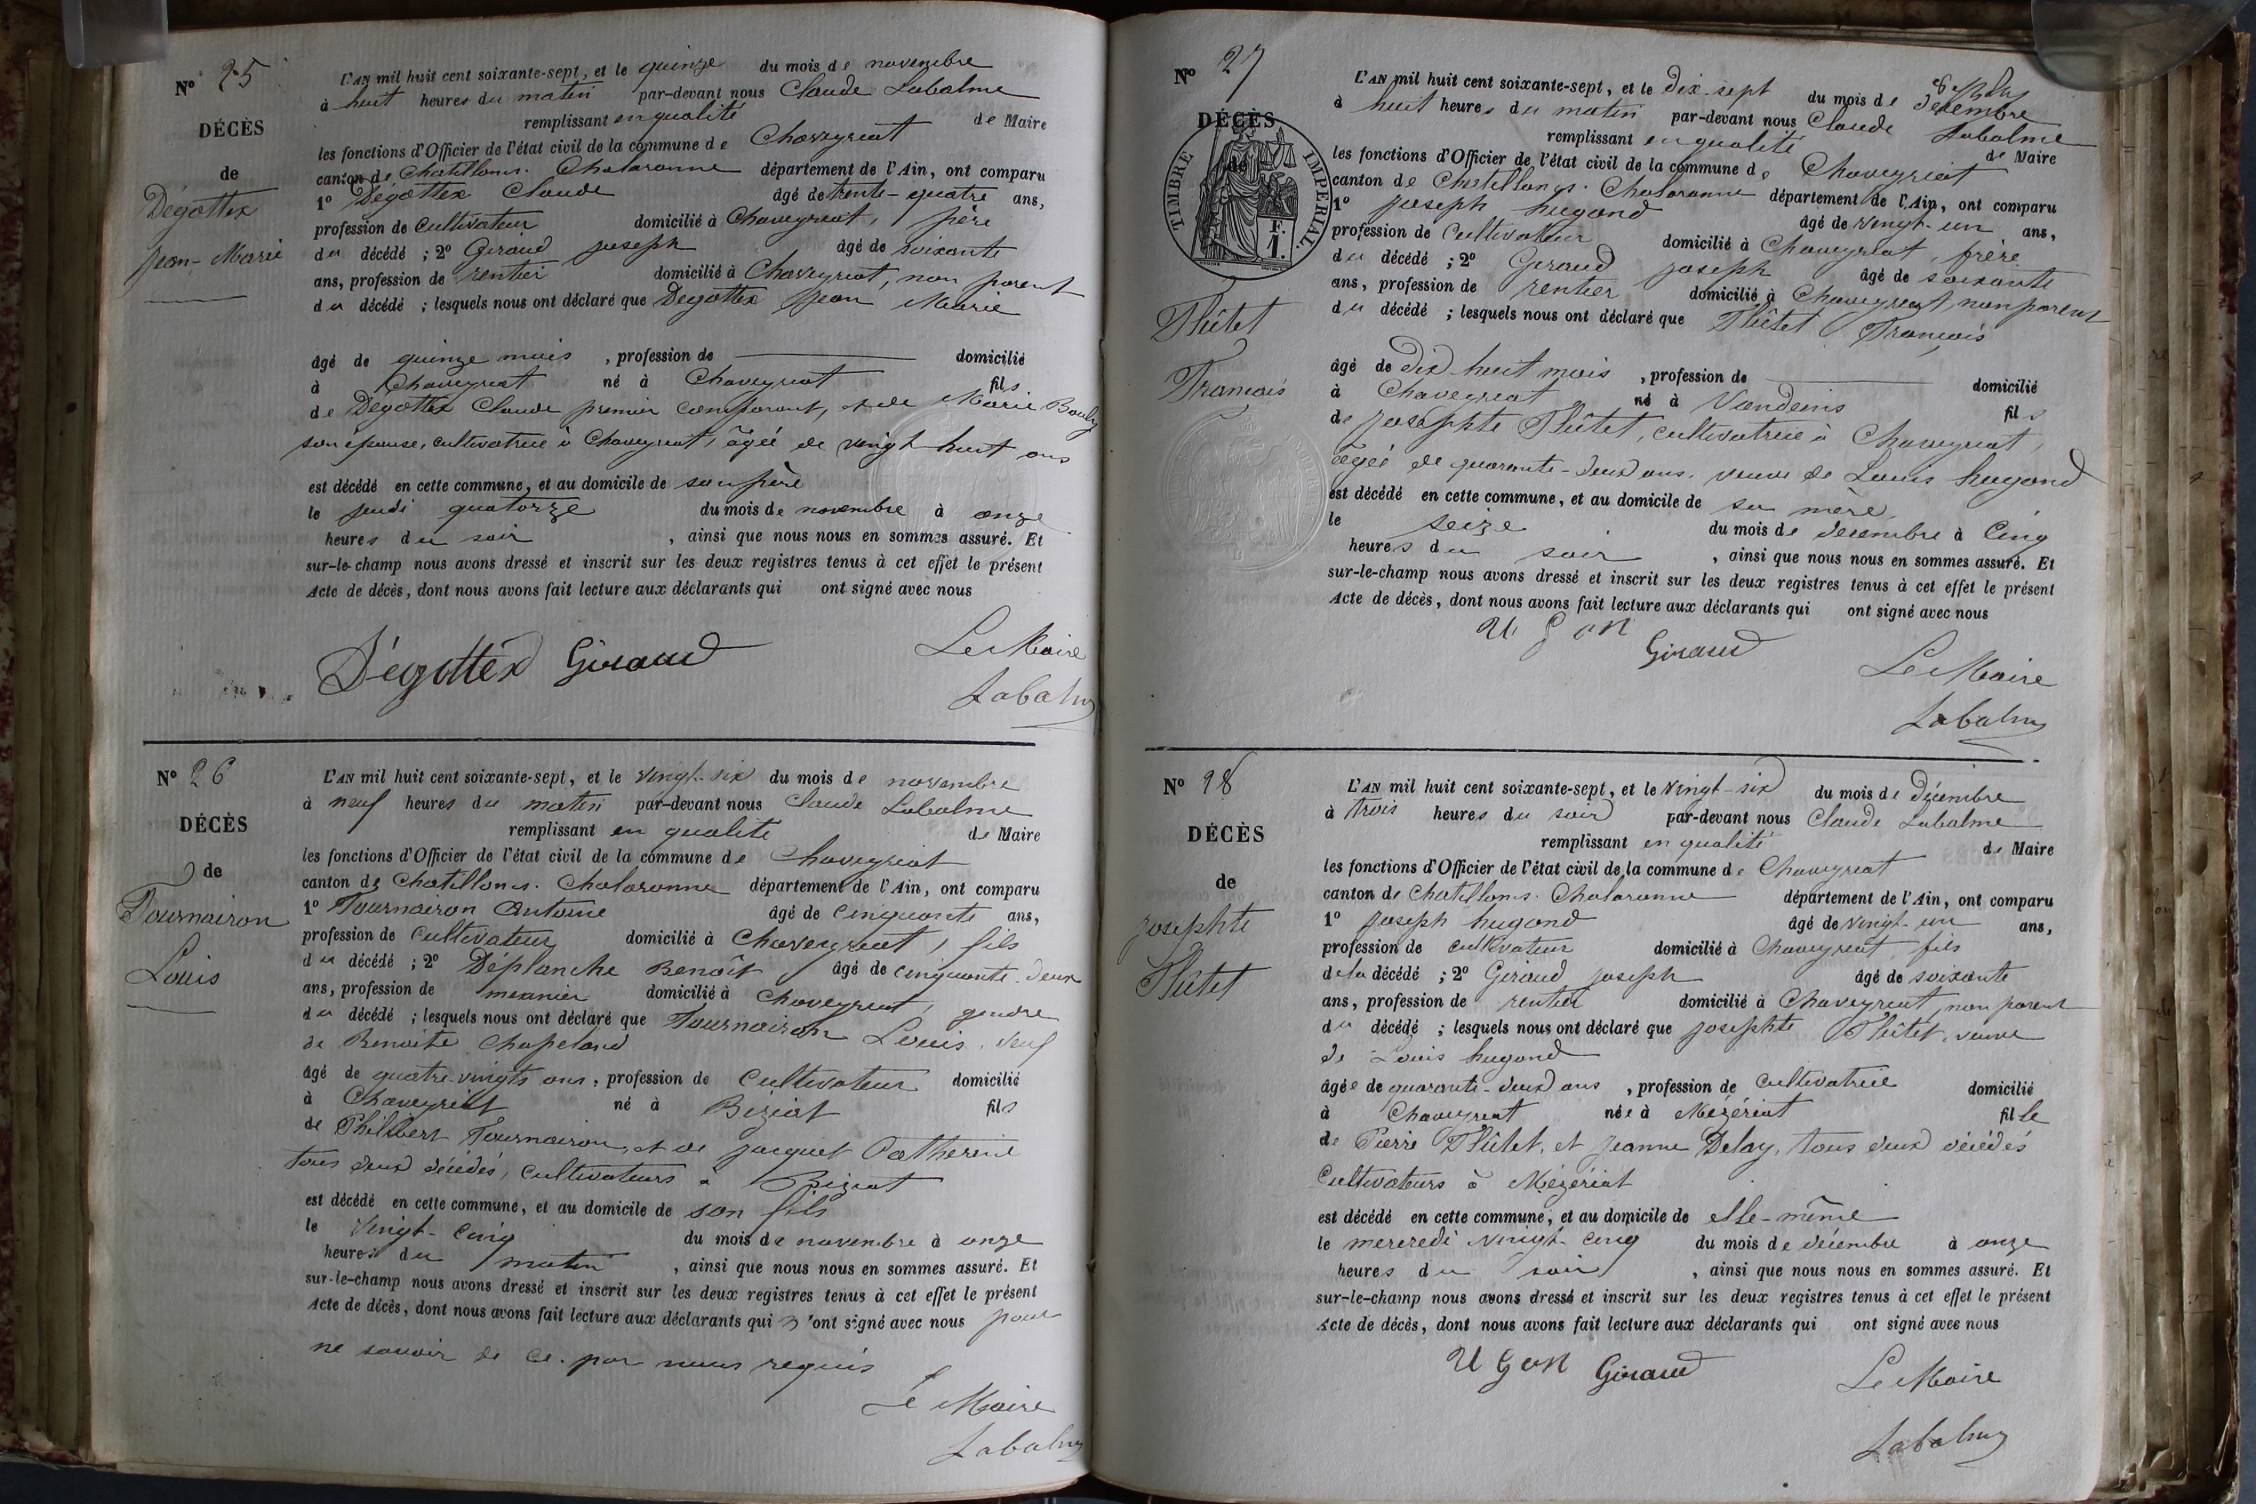 N° 25
DÉCÈS
de
Dégottex
Jean-Marie
L'AN mil huit cent soixante-sept, et le quinze du mois de novembre
à huit heures du matin par-devant nous Claude Labalme
remplissant en qualité de Maire
les fonctions d'Officier de l'état civil de la commune de Chaveyriat
canton de Chatillon s. Chalaronne département de l'Ain, ont comparu
1° Dégottex Claude âgé de trente-quatre ans,
profession de cultivateur domicilié à Chaveyriat, père
du décédé ; 2° Giraud joseph âgé de soixante
ans, profession de rentier domicilié à Chaveyriat, non parent
du décédé ; lesquels nous ont déclaré que Dégottex Jean Marie
âgé de quinze mois , profession de domicilié
à Chaveyriat né à Chaveyriat fils
de Dégottex Claude premier comparant, et de Marie
son épouse, cultivatrice à Chaveyriat, âgée de vingt huit ans
est décédé en cette commune, et au domicile de son père
le jeudi quatorze du mois de novembre à onze
heures du soir , ainsi que nous nous en sommes assuré. Et
sur-le-champ nous avons dressé et inscrit sur les deux registres tenus à cet effet le présent
Acte de décès, dont nous avons fait lecture aux déclarants qui ont signé avec nous
Dégottex Giraud Le Maire
Labalme
N° 26
DÉCÈS
de
Tournairon
Louis
L'AN mil huit cent soixante-sept, et le vingt-six du mois de novembre
à neuf heures du matin par-devant nous Claude Labalme
remplissant en qualité de Maire
les fonctions d'Officier de l'état civil de la commune de Chaveyriat
canton de Chatillon s. Chalaronne département de l'Ain, ont comparu
1° Tournairon Antoine âgé de cinquante ans,
profession de cultivateur domicilié à Chaveyriat, fils
du décédé ; 2° Déplanche Benoît âgé de cinquante-deux
ans, profession de meunier domicilié à Chaveyriat, gendre
du décédé ; lesquels nous ont déclaré que Tournairon Louis, veuf
de Benoite Chapeland
âgé de quatre-vingts ans, profession de cultivateur domicilié
à Chaveyriat né à Biziat fils
de Philibert Tournairon, et de jacquet Catherine
tous deux décédés, cultivateurs à Biziat
est décédé en cette commune, et au domicile de son fils
le vingt-cinq du mois de novembre à onze
heures du matin , ainsi que nous nous en sommes assuré. Et
sur-le-champ nous avons dressé et inscrit sur les deux registres tenus à cet effet le présent
Acte de décès, dont nous avons fait lecture aux déclarants qui n'ont signé avec nous pour
ne savoir de ce par nous requis
Le Maire
Labalme
N° 27
DÉCÈS
de
TIMBRE IMPÉRIAL.
1 F.
Thûtet
Francois
L'AN mil huit cent soixante-sept, et le dix-sept du mois de décembre
à huit heures du matin par-devant nous Claude Labalme
remplissant en qualité de Maire
les fonctions d'Officier de l'état civil de la commune de Chaveyriat
canton de Chatillon s. Chalaronne département de l'Ain, ont comparu
1° joseph hugond âgé de vingt-un ans,
profession de cultivateur domicilié à Chaveyriat, frère
du décédé ; 2° Giraud joseph âgé de soixante
ans, profession de rentier domicilié à Chaveyriat, non parent
du décédé ; lesquels nous ont déclaré que Thûtet François
âgé de dix-huit mois , profession de domicilié
à Chaveyriat né à Vandeins fils
de josephte Thûtet, cultivatrice à Chaveyriat,
âgée de quarante-deux ans, veuve de Louis hugond
est décédé en cette commune, et au domicile de sa mère,
le seize du mois de décembre à cinq
heures du soir , ainsi que nous nous en sommes assuré. Et
sur-le-champ nous avons dressé et inscrit sur les deux registres tenus à cet effet le présent
Acte de décès, dont nous avons fait lecture aux déclarants qui ont signé avec nous
Ugon Giraud
Le Maire
Labalme
N° 28
DÉCÈS
de
josephte
Thûtet
L'AN mil huit cent soixante-sept, et le vingt-six du mois de décembre
à trois heures du soir par-devant nous Claude Labalme
remplissant en qualité de Maire
les fonctions d'Officier de l'état civil de la commune de Chaveyriat
canton de Chatillon s. Chalaronne département de l'Ain, ont comparu
1° joseph hugond âgé de vingt-un ans,
profession de cultivateur domicilié à Chaveyriat, fils
de la décédé ; 2° Giraud joseph âgé de soixante
ans, profession de rentier domicilié à Chaveyriat, non parent
du décédé ; lesquels nous ont déclaré que josephte Thûtet, veuve
de Louis hugond
âgée de quarante-deux ans , profession de cultivatrice domicilié
à Chaveyriat née à Mézériat fille
de Pierre Thûtet, et jeanne Delay, tous deux décédés
cultivateurs à Mézériat
est décédé en cette commune, et au domicile de elle-même
le mercredi vingt-cinq du mois de décembre à onze
heures du soir , ainsi que nous nous en sommes assuré. Et
sur-le-champ nous avons dressé et inscrit sur les deux registres tenus à cet effet le présent
Acte de décès, dont nous avons fait lecture aux déclarants qui ont signé avec nous
Ugon Giraud Le Maire
Labalme